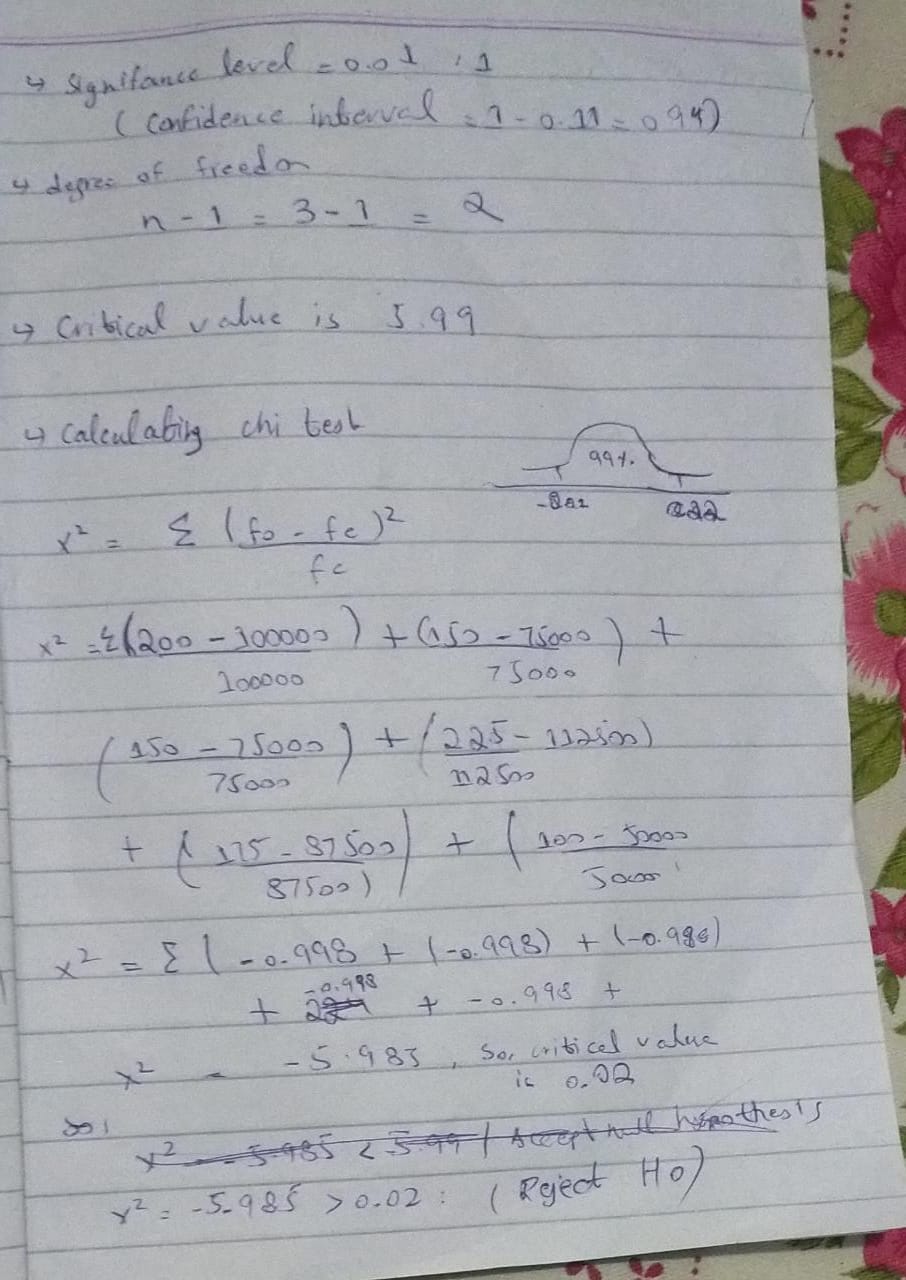 ↳ Signifance level = 0.01 : 1
( Confidence interval = 1 - 0.11 = 0.94)
↳ degree of freedom
n - 1 = 3 - 1 = 2
↳ Critical value is 5.99
↳ Calculating chi test
99%.
x² = Σ (fo - fe)²
fe
x² = Σ(200 - 100000) + (150 - 75000) +
100000 75000
(150 - 75000) + (225 - 112500)
75000 112500
+ (175 - 87500) + (100 - 50000
87500) 50000
x² = Σ ( -0.998 + (-0.998) + (-0.986)
-0.998
+ + -0.998 +
x² = -5.985, So, critical value
is 0.02
So,
x² = -5.985 < 5.99 / Accept null hypothesis
x² = -5.985 > 0.02 : (Reject Ho)